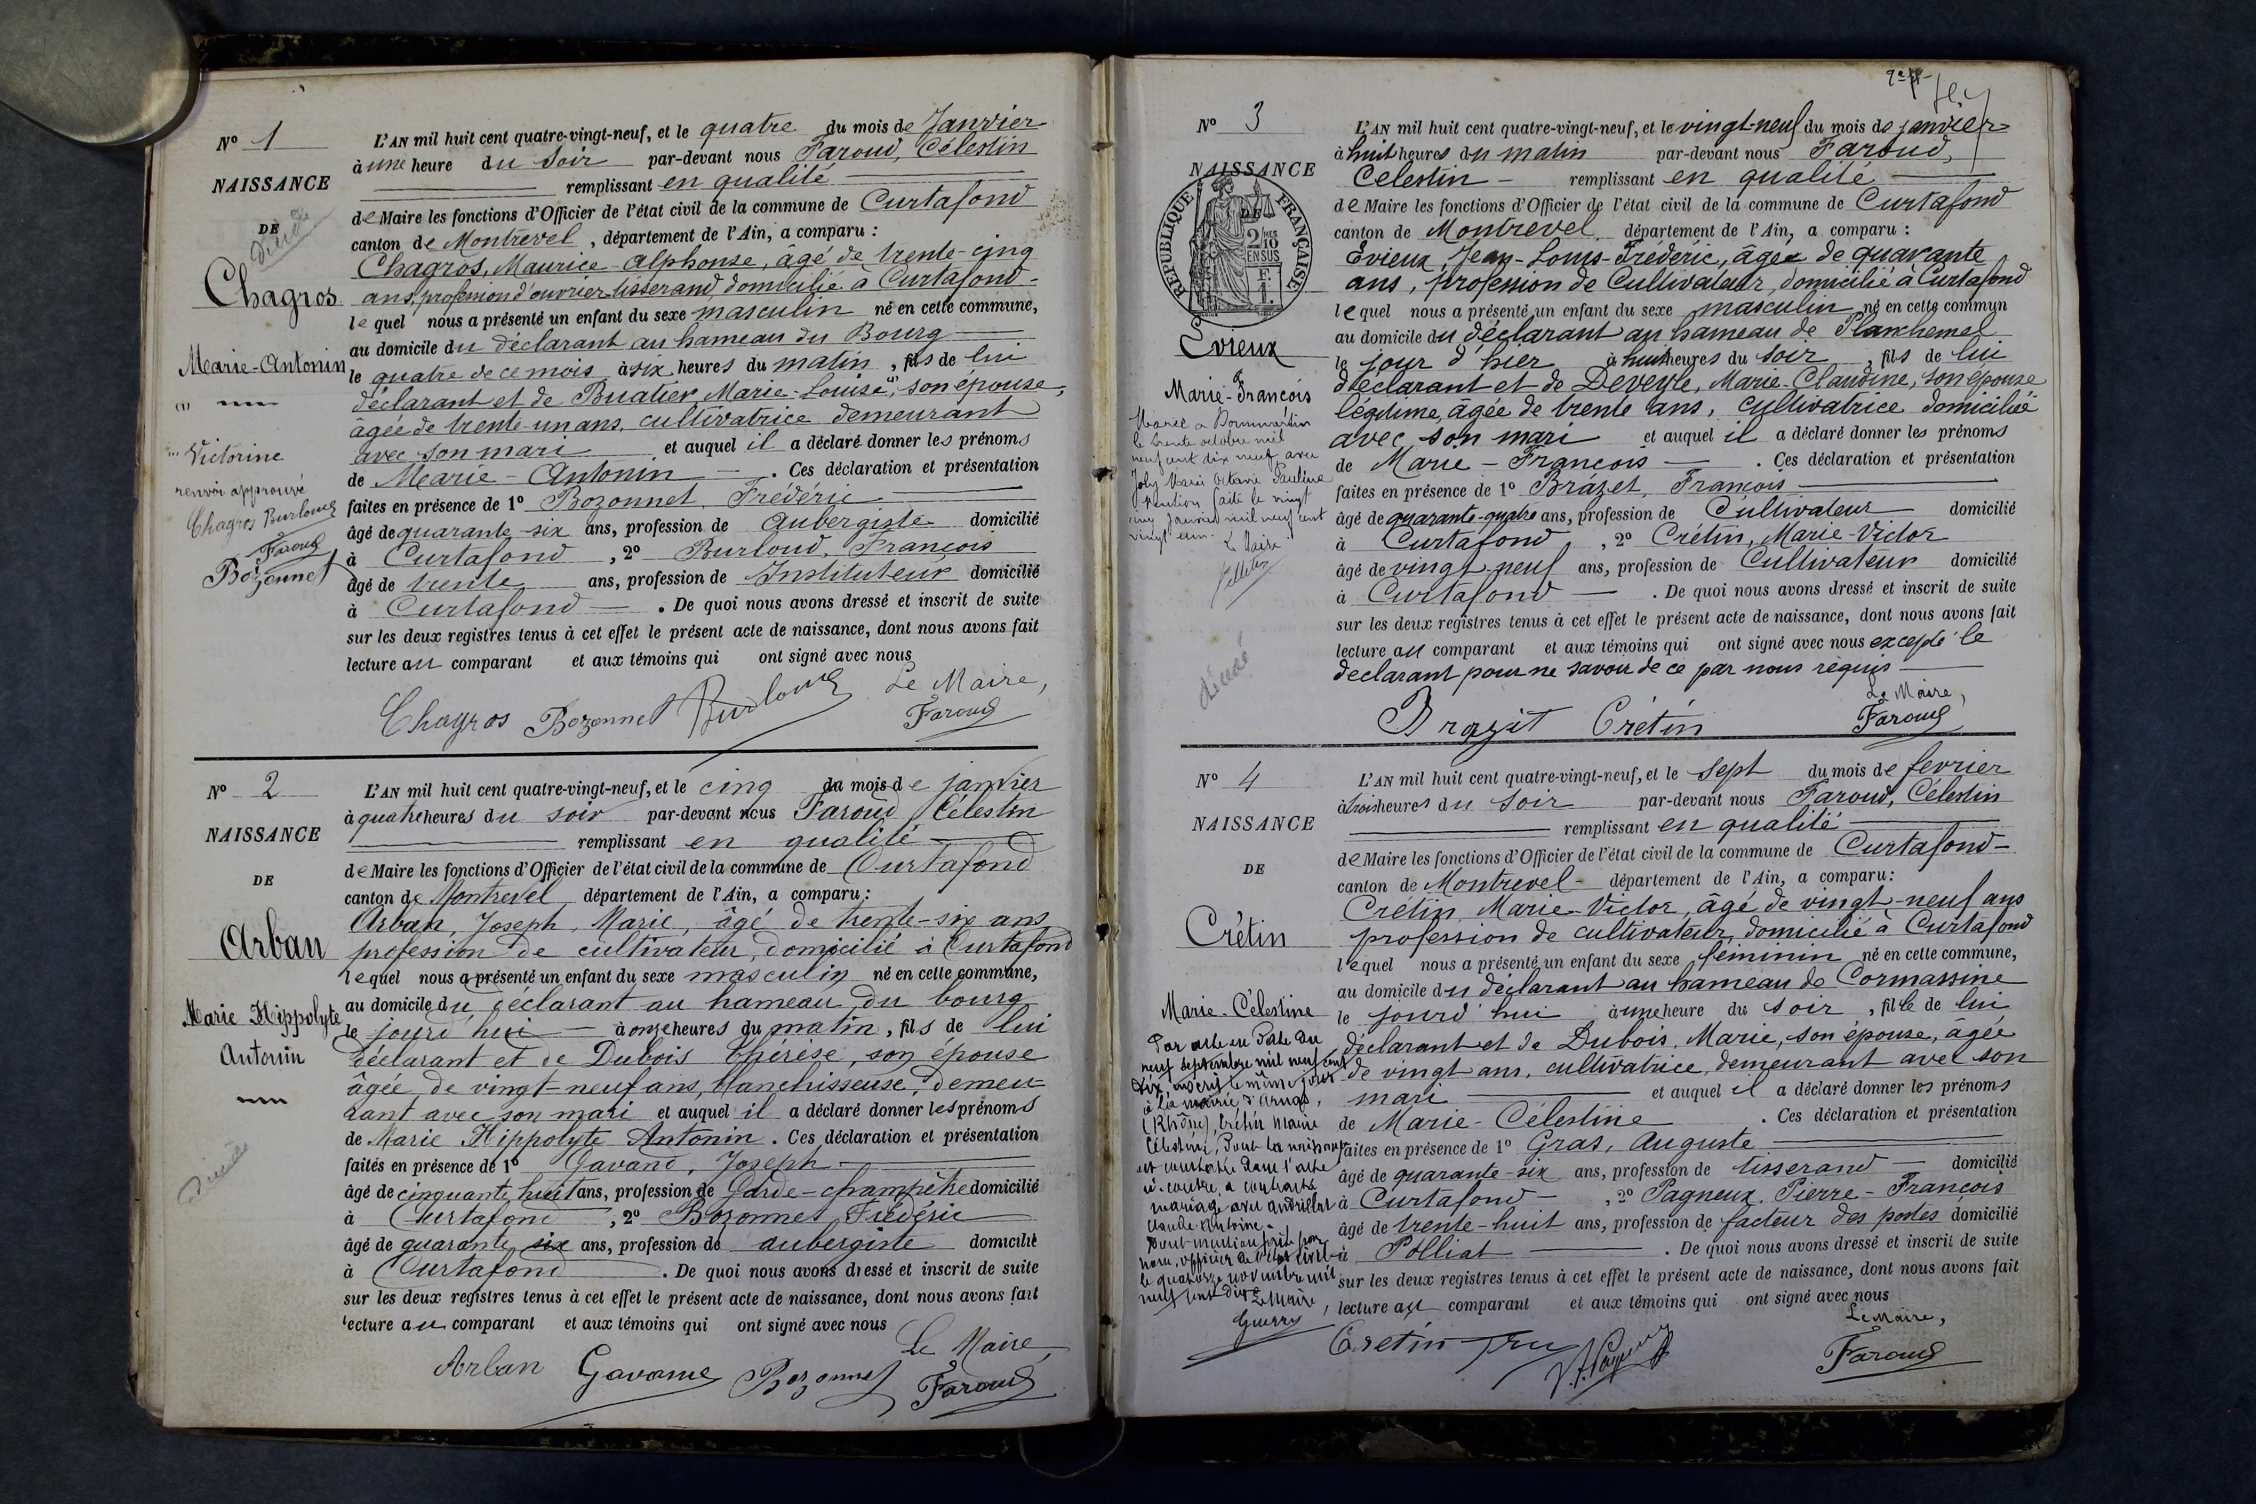 N° 1
NAISSANCE
DE
décédé
Chagros
Marie-Antonin
(1)
Victorine
renvoi approuvé
Chagros Burloud
Faroud
Bozonnet
L'AN mil huit cent quatre-vingt-neuf, et le quatre du mois de Janvier
à une heure du soir par-devant nous Faroud, Célestin
remplissant en qualité
de Maire les fonctions d'Officier de l'état civil de la commune de Curtafond
canton de Montrevel, département de l'Ain, a comparu :
Chagros, Maurice-Alphonse, âgé de trente-cinq
ans, profession d'ouvrier tisserand, domicilié à Curtafond-
lequel nous a présenté un enfant du sexe masculin né en cette commune,
au domicile du déclarant au hameau du Bourg
le quatre de ce mois à six heures du matin, fils de lui
déclarant et de Buatier Marie-Louise (1), son épouse,
âgée de trente-un ans, cultivatrice demeurant
avec son mari et auquel il a déclaré donner les prénoms
de Marie-Antonin. Ces déclaration et présentation
faites en présence de 1° Bozonnet, Frédéric
âgé de quarante-six ans, profession de Aubergiste domicilié
à Curtafond, 2° Burloud, François
âgé de trente ans, profession de Instituteur domicilié
à Curtafond. De quoi nous avons dressé et inscrit de suite
sur les deux registres tenus à cet effet le présent acte de naissance, dont nous avons fait
lecture au comparant et aux témoins qui ont signé avec nous
Chagros Bozonnet Burloud Le Maire,
Faroud
N° 2
NAISSANCE
DE
Arban
Marie Hippolyte
Antonin
décédé
L'AN mil huit cent quatre-vingt-neuf, et le cinq du mois de janvier
à quatre heures du soir par-devant nous Faroud Célestin
remplissant en qualité
de Maire les fonctions d'Officier de l'état civil de la commune de Curtafond
canton de Montrevel département de l'Ain, a comparu :
Arban, Joseph, Marie, âgé de trente-six ans
profession de cultivateur, domicilié à Curtafond
lequel nous a présenté un enfant du sexe masculin né en cette commune,
au domicile du déclarant au hameau du bourg
le jourd'hui à onze heures du matin, fils de lui
déclarant et de Dubois Thérèse, son épouse
âgée de vingt-neuf ans, blanchisseuse, demeu-
rant avec son mari et auquel il a déclaré donner les prénoms
de Marie Hippolyte Antonin. Ces déclaration et présentation
faites en présence de 1° Gavand, Joseph
âgé de cinquante huit ans, profession de Garde-champêtre domicilié
à Curtafond, 2° Bozonnet Frédéric
âgé de quarante six ans, profession de aubergiste domicilié
à Curtafond. De quoi nous avons dressé et inscrit de suite
sur les deux registres tenus à cet effet le présent acte de naissance, dont nous avons fait
lecture au comparant et aux témoins qui ont signé avec nous
Le Maire
Arban Gavand Bozonnet Faroud
N° 3
NAISSANCE
DE
RÉPUBLIQUE FRANÇAISE
2/10 EN SUS
Evieux
Marie-François
Marié à Dommartin
le trente octobre mil
neuf cent dix neuf avec
Joly Marie Octavie Pauline
Mention faite le vingt
cinq Janvier mil neuf cent
vingt un.
Le Maire
décédé
L'AN mil huit cent quatre-vingt-neuf, et le vingt-neuf du mois de janvier
à huit heures du matin par-devant nous Faroud,
Célestin - remplissant en qualité
de Maire les fonctions d'Officier de l'état civil de la commune de Curtafond
canton de Montrevel département de l'Ain, a comparu :
Evieux Jean-Louis-Frédéric, âgé de quarante
ans, profession de Cultivateur, domicilié à Curtafond
lequel nous a présenté un enfant du sexe masculin né en cette commun
au domicile du déclarant au hameau de Planchemel
le jour d'hier à huit heures du soir, fils de lui
déclarant et de Deveyle, Marie-Claudine, son épouse
légitime, âgée de trente ans, cultivatrice domiciliée
avec son mari et auquel il a déclaré donner les prénoms
de Marie-François. Ces déclaration et présentation
faites en présence de 1° Brazet, François
âgé de quarante-quatre ans, profession de Cultivateur domicilié
à Curtafond, 2° Crétin, Marie-Victor
âgé de vingt-neuf ans, profession de Cultivateur domicilié
à Curtafond. De quoi nous avons dressé et inscrit de suite
sur les deux registres tenus à cet effet le présent acte de naissance, dont nous avons fait
lecture au comparant et aux témoins qui ont signé avec nous excepté le
déclarant pour ne savoir de ce par nous requis
Le Maire,
Brazit Crétin Faroud
N° 4
NAISSANCE
DE
Crétin
Marie-Célestine
Par acte en date du
neuf septembre mil neuf cent
dix inscrit le même jour
à la mairie d'Arnas,
(Rhône), Crétin Marie
Célestine, dont la naissance
est constatée dans l'acte
ci-contre, a contracté
mariage avec
Claude Antoine.
Dont mention faite par
nous, officier de l'état civil
le quatorze novembre mil
neuf cent dix.
Le Maire,
Guerry
L'AN mil huit cent quatre-vingt-neuf, et le sept du mois de fevrier
à trois heures du soir par-devant nous Faroud, Célestin
remplissant en qualité
de Maire les fonctions d'Officier de l'état civil de la commune de Curtafond-
canton de Montrevel- département de l'Ain, a comparu :
Crétin, Marie-Victor, âgé de vingt-neuf ans
profession de cultivateur, domicilié à Curtafond
lequel nous a présenté un enfant du sexe féminin né en cette commune,
au domicile du déclarant au hameau de Cormassine
le jourd'hui à une heure du soir, fille de lui
déclarant et de Dubois, Marie, son épouse, âgée
de vingt ans, cultivatrice, demeurant avec son
mari et auquel il a déclaré donner les prénoms
de Marie-Célestine. Ces déclaration et présentation
faites en présence de 1° Gras, Auguste
âgé de quarante-six ans, profession de tisserand domicilié
à Curtafond-, 2° Pagneux, Pierre-François
âgé de trente-huit ans, profession de facteur des postes domicilié
à Polliat. De quoi nous avons dressé et inscrit de suite
sur les deux registres tenus à cet effet le présent acte de naissance, dont nous avons fait
lecture au comparant et aux témoins qui ont signé avec nous
Le Maire,
Cretin
Faroud